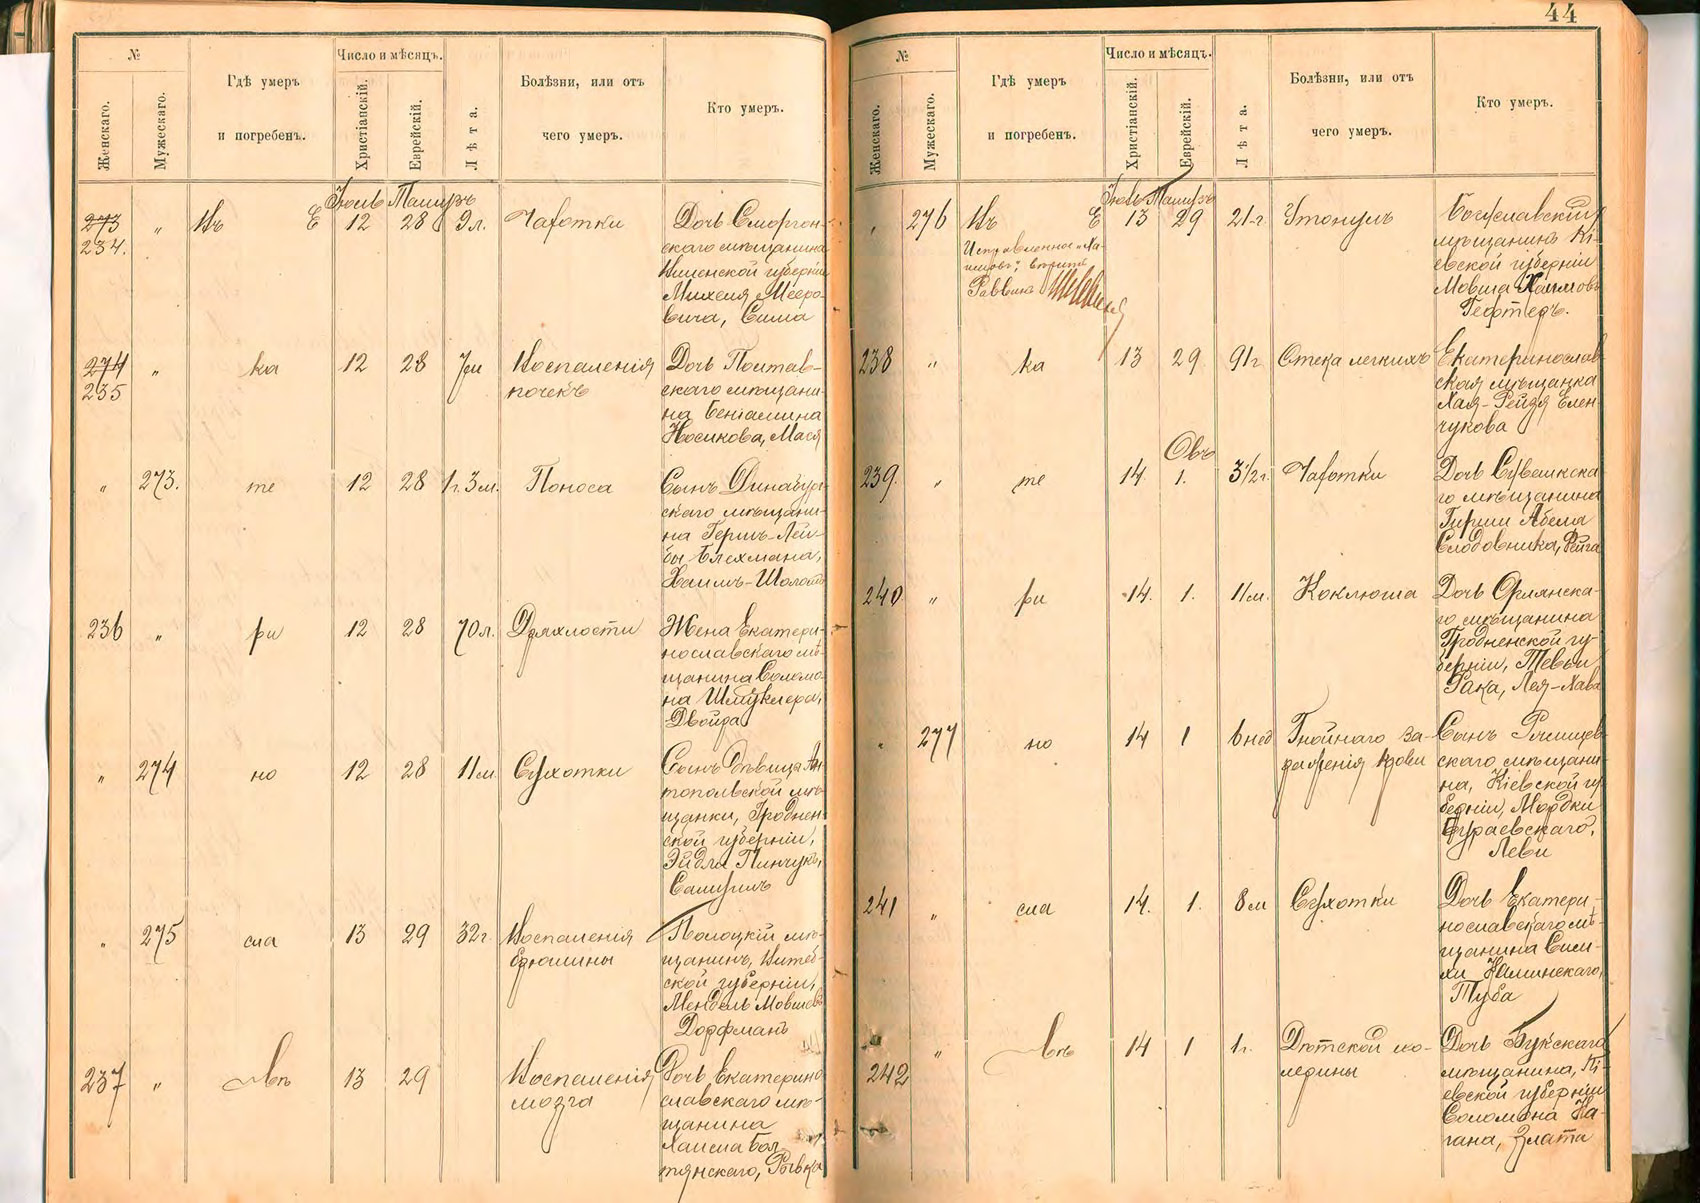 №
Женскаго.
Мужескаго.
Гдѣ умеръ
и погребенъ.
Число и мѣсяцъ.
Христіанскій.
Еврейскій.
Лѣта.
Болѣзни, или отъ
чего умеръ.
Кто умеръ.
Іюль Тамузъ
273
234.
"
Въ Е
12
28
9 л.
Чахотки
Дочь Сморгон-
скаго мѣщанина
Виленской губерніи
Михеля Мееро-
вича, Сима
274
235
"
ка
12
28
7 м
Воспаленія
почекъ
Дочь Полтав-
скаго мѣщани-
на Беніамина
Носикова, Мася
"
273.
те
12
28
1 г. 3 м.
Поноса
Сынъ Динабург-
скаго мѣщани-
на Герша-Лей-
бы Блехмана,
Хаимъ-Шоломъ
236
"
ри
12
28
70 л.
Дряхлости
Жена Екатери-
нославскаго мѣ-
щанина Соломо-
на Шмуклера,
Двойра
"
274
но
12
28
11 м
Сухотки
Сынъ дѣвицы Ан-
топольской мѣ-
щанки, Гроднен-
ской губерніи,
Эйдли Пинчукъ,
Самуилъ
"
275
сла
13
29
32 г.
Воспаленія
брюшины
Полоцкій мѣ-
щанинъ, Витеб-
ской губерніи,
Мендель Мовшовъ
Дорфманъ
237
"
вѣ
13
29
Воспаленія
мозга
Дочь Екатерино-
славскаго мѣ-
щанина
тянскаго, Ривка
44
№
Женскаго.
Мужескаго.
Гдѣ умеръ
и погребенъ.
Число и мѣсяцъ.
Христіанскій.
Еврейскій.
Лѣта.
Болѣзни, или отъ
чего умеръ.
Кто умеръ.
Іюль Тамузъ
"
276
Въ Е
13
29
21 г.
Утонулъ
Богуславскій
мѣщанинъ Кі-
евской губерніи
Мовша Хаимовъ
Гефтеръ.
Исправленное „Ха-
имовъ", вѣрить
Раввинъ
238
"
ка
13
29
91 г
Отека легкихъ
Екатеринослав-
ская мѣщанка
Хая-Рейзя Елен-
чукова
Овъ
239.
"
те
14.
1.
3 1/2 г.
Чахотки
Дочь Сувалкска-
го мѣщанина
Гирши Абеля
Слободовника, Фейга
240
"
ри
14.
1.
11 м.
Коклюша
Дочь Орлянска-
го мѣщанина
Гродненской гу-
берніи, Тевьи
Рака, Лея-Хава
"
277
но
14
1
6 нед
Гнойнаго за-
раженія крови
Сынъ Ржищев-
скаго мѣщани-
на, Кіевской гу-
берніи, Мордки
Бураевскаго,
Леви
241
"
сла
14.
1.
8 м
Сухотки
Дочь Екатери-
нославскаго мѣ-
щанина Сим-
хи Каминскаго,
Туба
242
"
вѣ
14
1
1 г.
Дѣтской хо-
лерины
Дочь Букскаго
мѣщанина, Кі-
евской губерніи
Соломона Ка-
гана, Злата